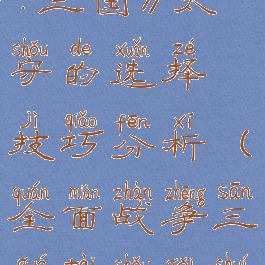 :三国》太
shǒu de xuǎn zé
守的选择
jì qiǎo fēn xī
技巧分析（
quán miàn zhàn zhēng sān
全面战争三